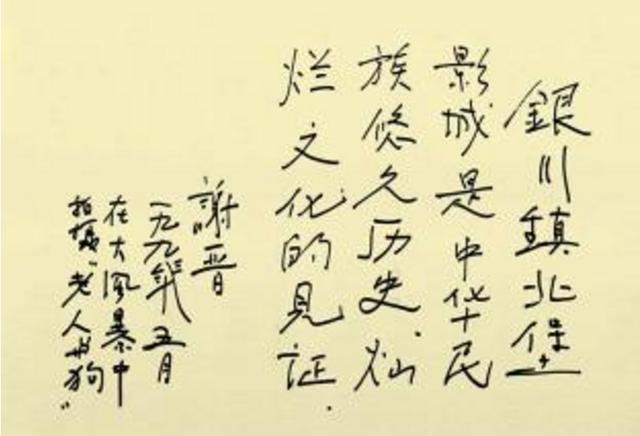 銀川鎮北堡
影城是中华民
族悠久历史、灿
烂文化的見証.
謝晋
一九九年五月
在大風暴中
拍摄"老人与狗"